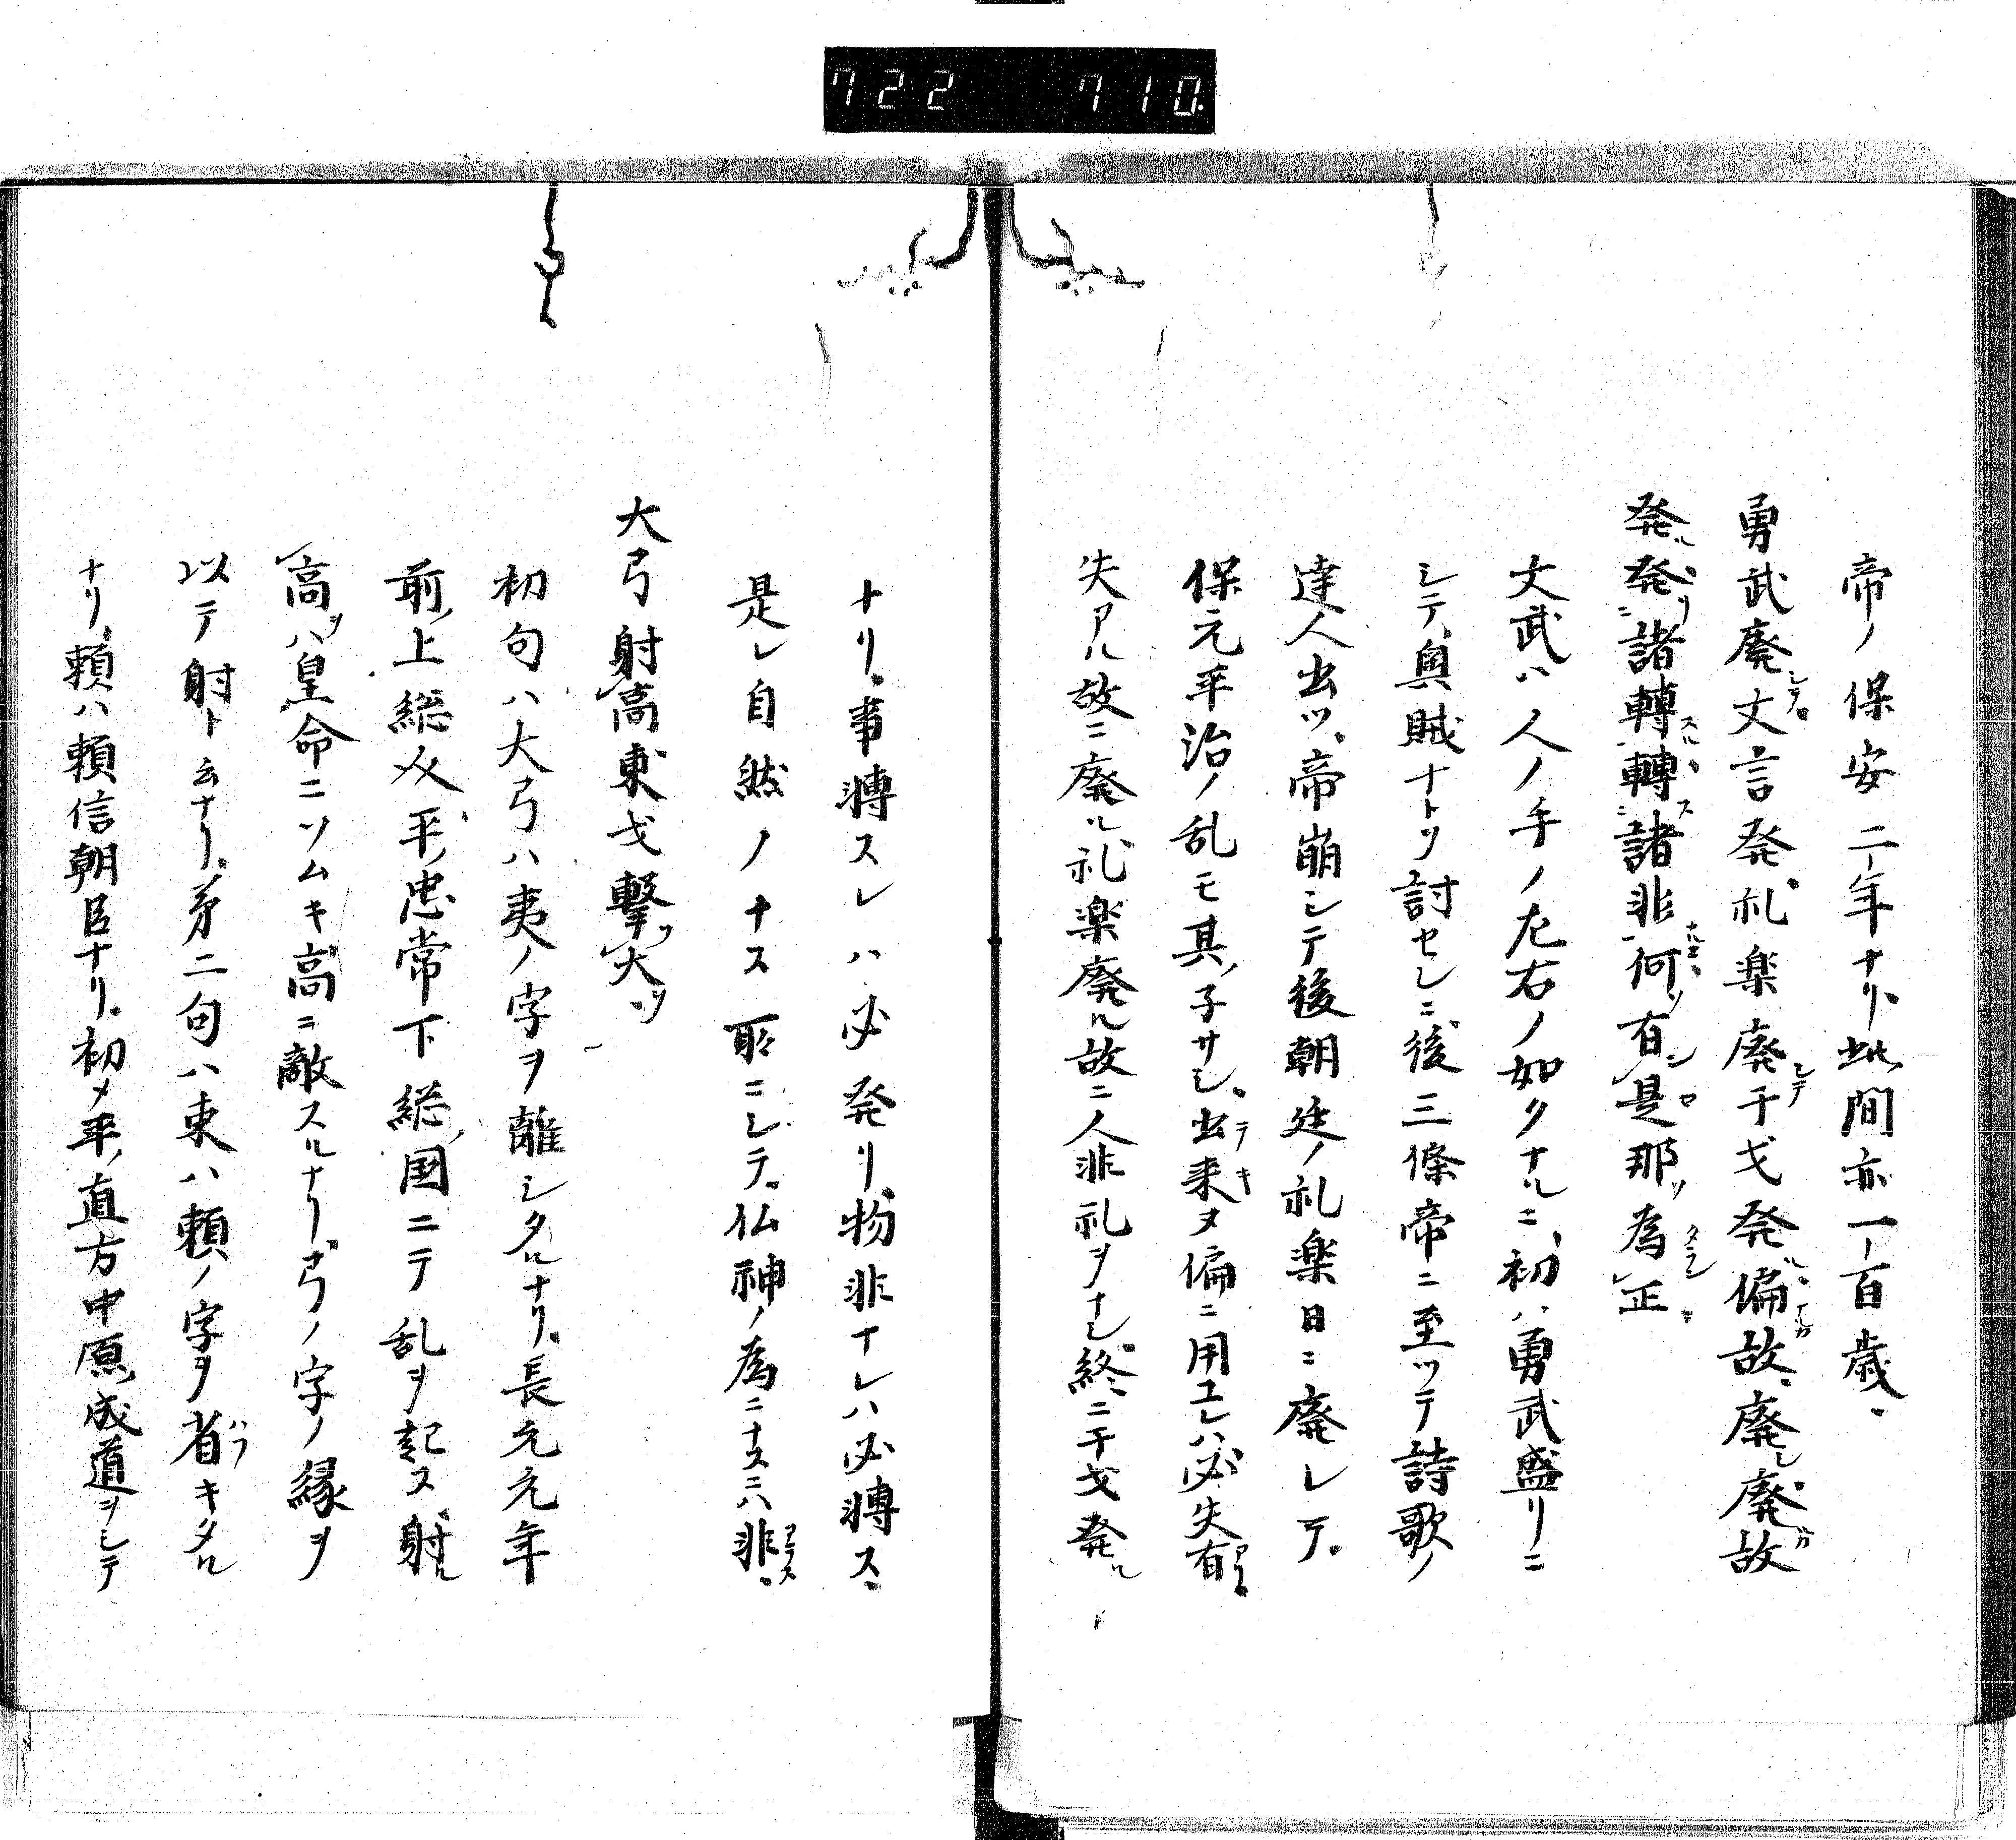 722 710
帝ノ保安二年ナリ、此間亦一百歳、
勇武廃シテ、文言発、礼楽廃シテ干戈発ル、偏ナルカ故、廃シ、廃カ故
発ル、発リ諸轉スル、轉ス諸非ナルモ、何ソ有ン是ヤ那ソ為タランヤ正
文武ハ人ノ手ノ左右ノ如クナルニ、初ハ勇武盛リニ
シテ、奥賊ナトヲ討セシニ、後三條帝ニ至ツテ詩歌ノ
達人出ツ、帝崩シテ後朝廷ノ礼楽日ニ廃レテ、
保元平治ノ乱モ其ノ子サシ、出テ来キヌ偏ニ用ユレハ必失有
失アル故ニ廃ル、礼楽廃ル故ニ人非礼ヲナシ、終ニ干戈発ル
ナリ、事轉スレハ必発リ、物非ナレハ必轉ス、
是レ自然ノナス所ニシテ、仏神ノ為ニナスニハ非アラス、
大弓射高東戈撃ツ大ヲ
初句ハ大弓ハ夷ノ字ヲ離シタルナリ、長元元年
前上総介平ノ忠常下総ノ国ニテ乱ヲ記ス、射ル
高ヲハ皇命ニソムキ高ニ敵スルナリ、弓ノ字ノ縁ヲ
以テ射ト云ナリ、第二句ハ東ハ頼ノ字ヲ省ハフキタル
ナリ、頼ハ頼信朝臣ナリ、初メ平ノ直方中原ノ成道ヲシテ